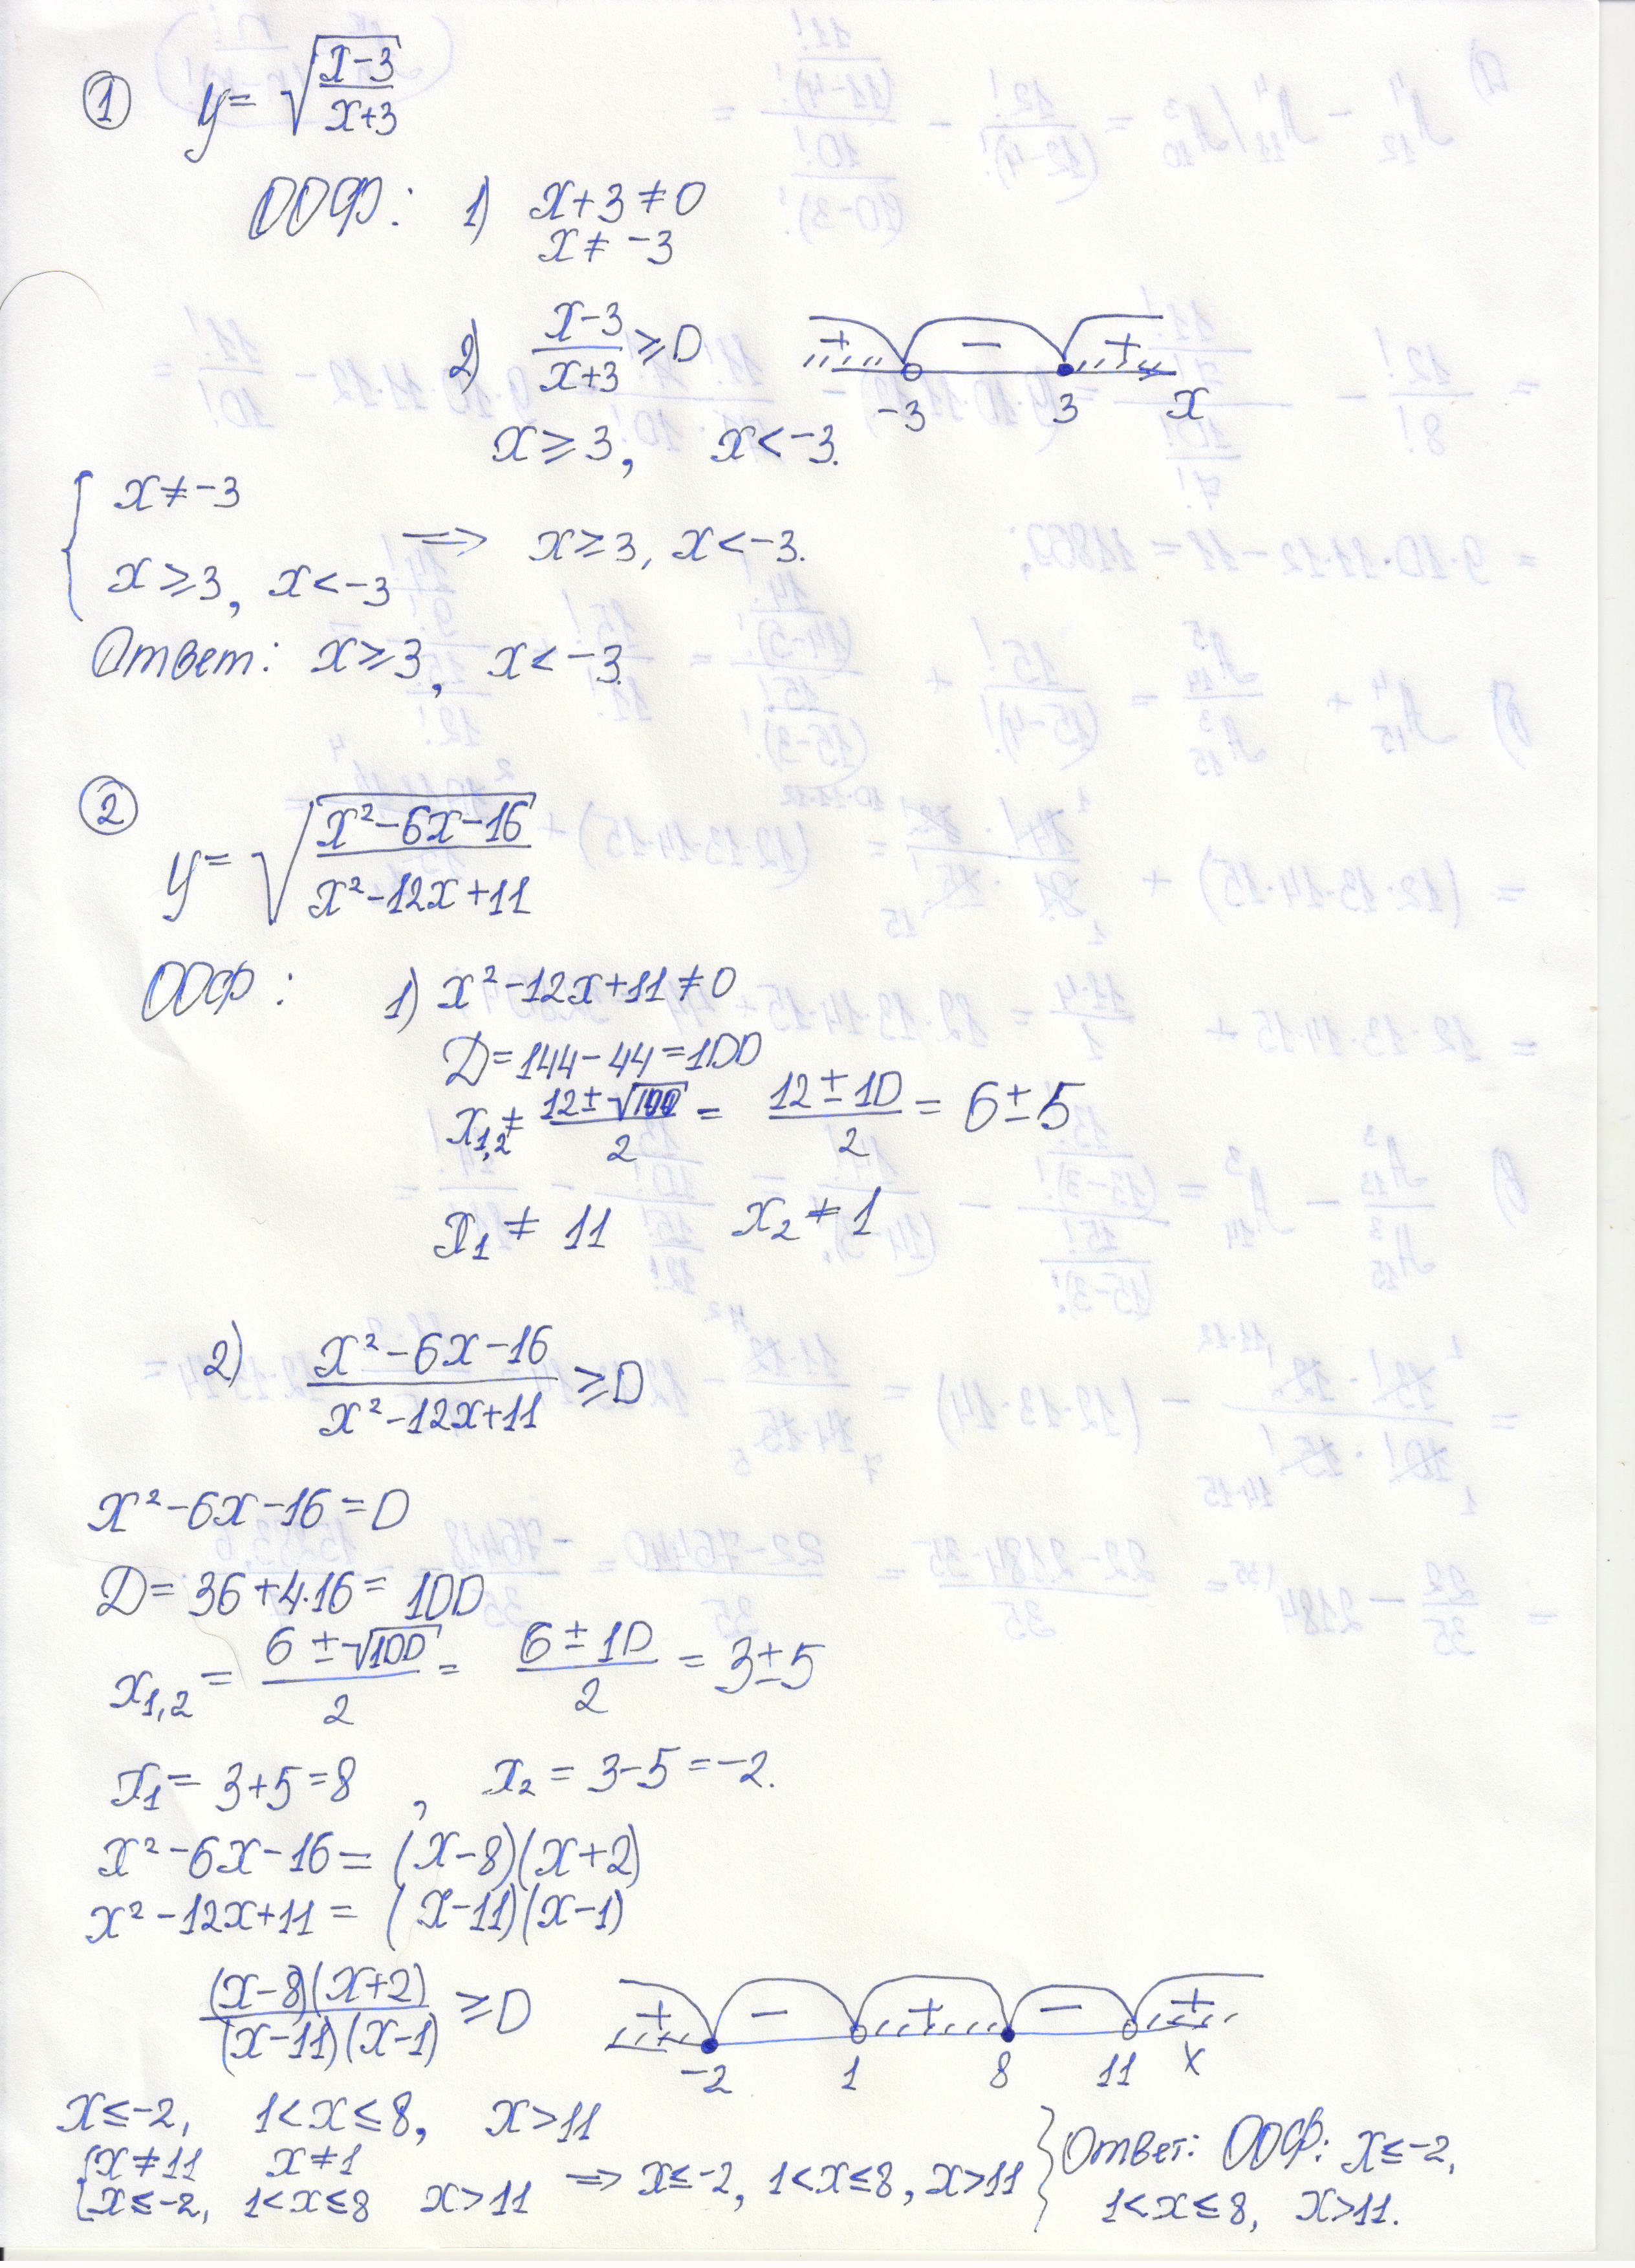 ① y = √((x-3)/(x+3))
ООФ: 1) x+3 ≠ 0
x ≠ -3
2) (x-3)/(x+3) ≥ 0
+ - +
-3 3 x
x ≥ 3, x < -3.
{ x ≠ -3
x ≥ 3, x < -3 ⟹ x ≥ 3, x < -3.
Ответ: x ≥ 3, x < -3.
② y = √((x²-6x-16)/(x²-12x+11))
ООФ: 1) x²-12x+11 ≠ 0
D = 144 - 44 = 100
x₁,₂ ≠ (12 ± √100)/2 = (12 ± 10)/2 = 6 ± 5
x₁ ≠ 11 x₂ ≠ 1
2) (x²-6x-16)/(x²-12x+11) ≥ 0
x²-6x-16 = 0
D = 36+4·16 = 100
x₁,₂ = (6 ± √100)/2 = (6 ± 10)/2 = 3 ± 5
x₁ = 3+5 = 8, x₂ = 3-5 = -2.
x²-6x-16 = (x-8)(x+2)
x²-12x+11 = (x-11)(x-1)
((x-8)(x+2))/((x-11)(x-1)) ≥ 0
+ - + - +
-2 1 8 11 x
x ≤ -2, 1 < x ≤ 8, x > 11
{ x ≠ 11 x ≠ 1
x ≤ -2, 1 < x ≤ 8 x > 11 ⟹ x ≤ -2, 1 < x ≤ 8, x > 11
} Ответ: ООФ: x ≤ -2,
1 < x ≤ 8, x > 11.